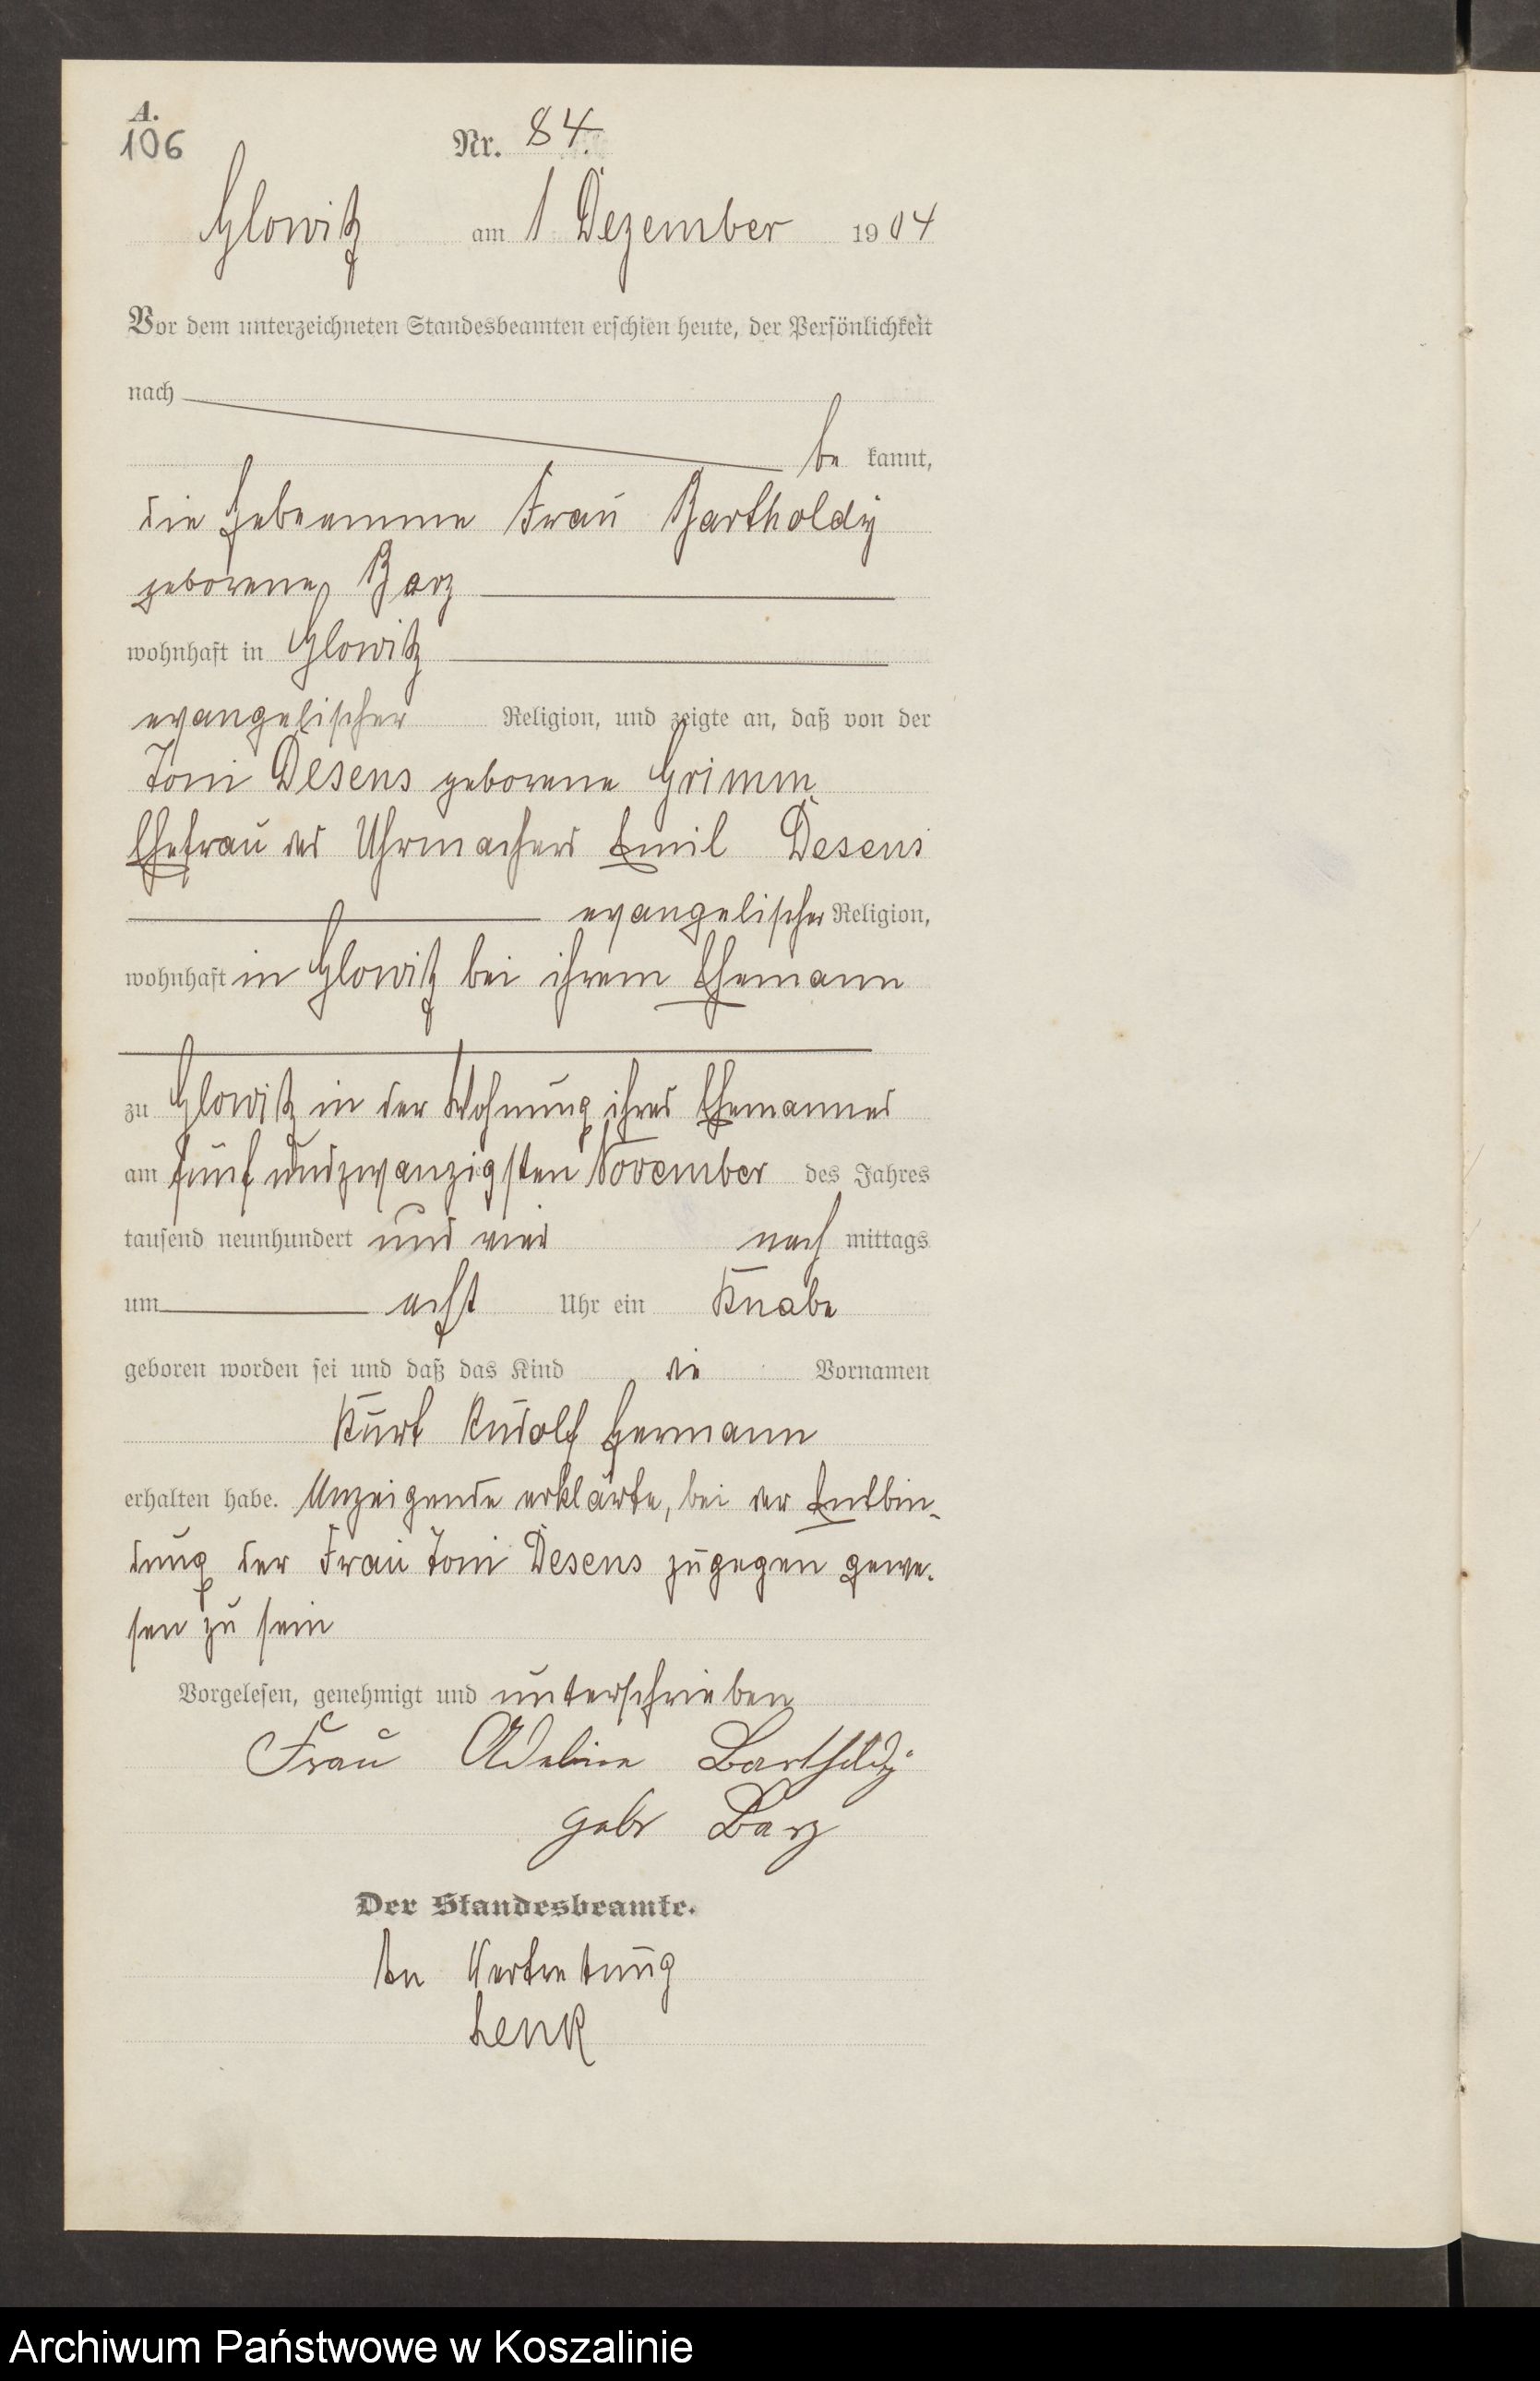 A.
106
Nr. 84.
Glowitz am 1 Dezember 1904
Vor dem unterzeichneten Standesbeamten erschien heute, der Persönlichkeit
nach
be kannt,
die Hebeamme Frau Bartholdy
geborene Barz
wohnhaft in Glowitz
evangelischer Religion, und zeigte an, daß von der
Toni Desens geborene Grimm,
Ehefrau des Uhrmachers Emil Desens
evangelischer Religion,
wohnhaft in Glowitz bei ihrem Ehemann
zu Glowitz in der Wohnung ihres Ehemannes
am fünfundzwanzigsten November des Jahres
tausend neunhundert und vier nach mittags
um acht Uhr ein Knabe
geboren worden sei und daß das Kind die Vornamen
Kurt Rudolf Hermann
erhalten habe. Anzeigende erklärte, bei der Entbin-
dung der Frau Toni Desens zugegen gewe-
sen zu sein
Vorgelesen, genehmigt und unterschrieben
Frau Adeline Bartholdy
geb Barz
Der Standesbeamte.
In Vertretung
Lenk
Archiwum Państwowe w Koszalinie